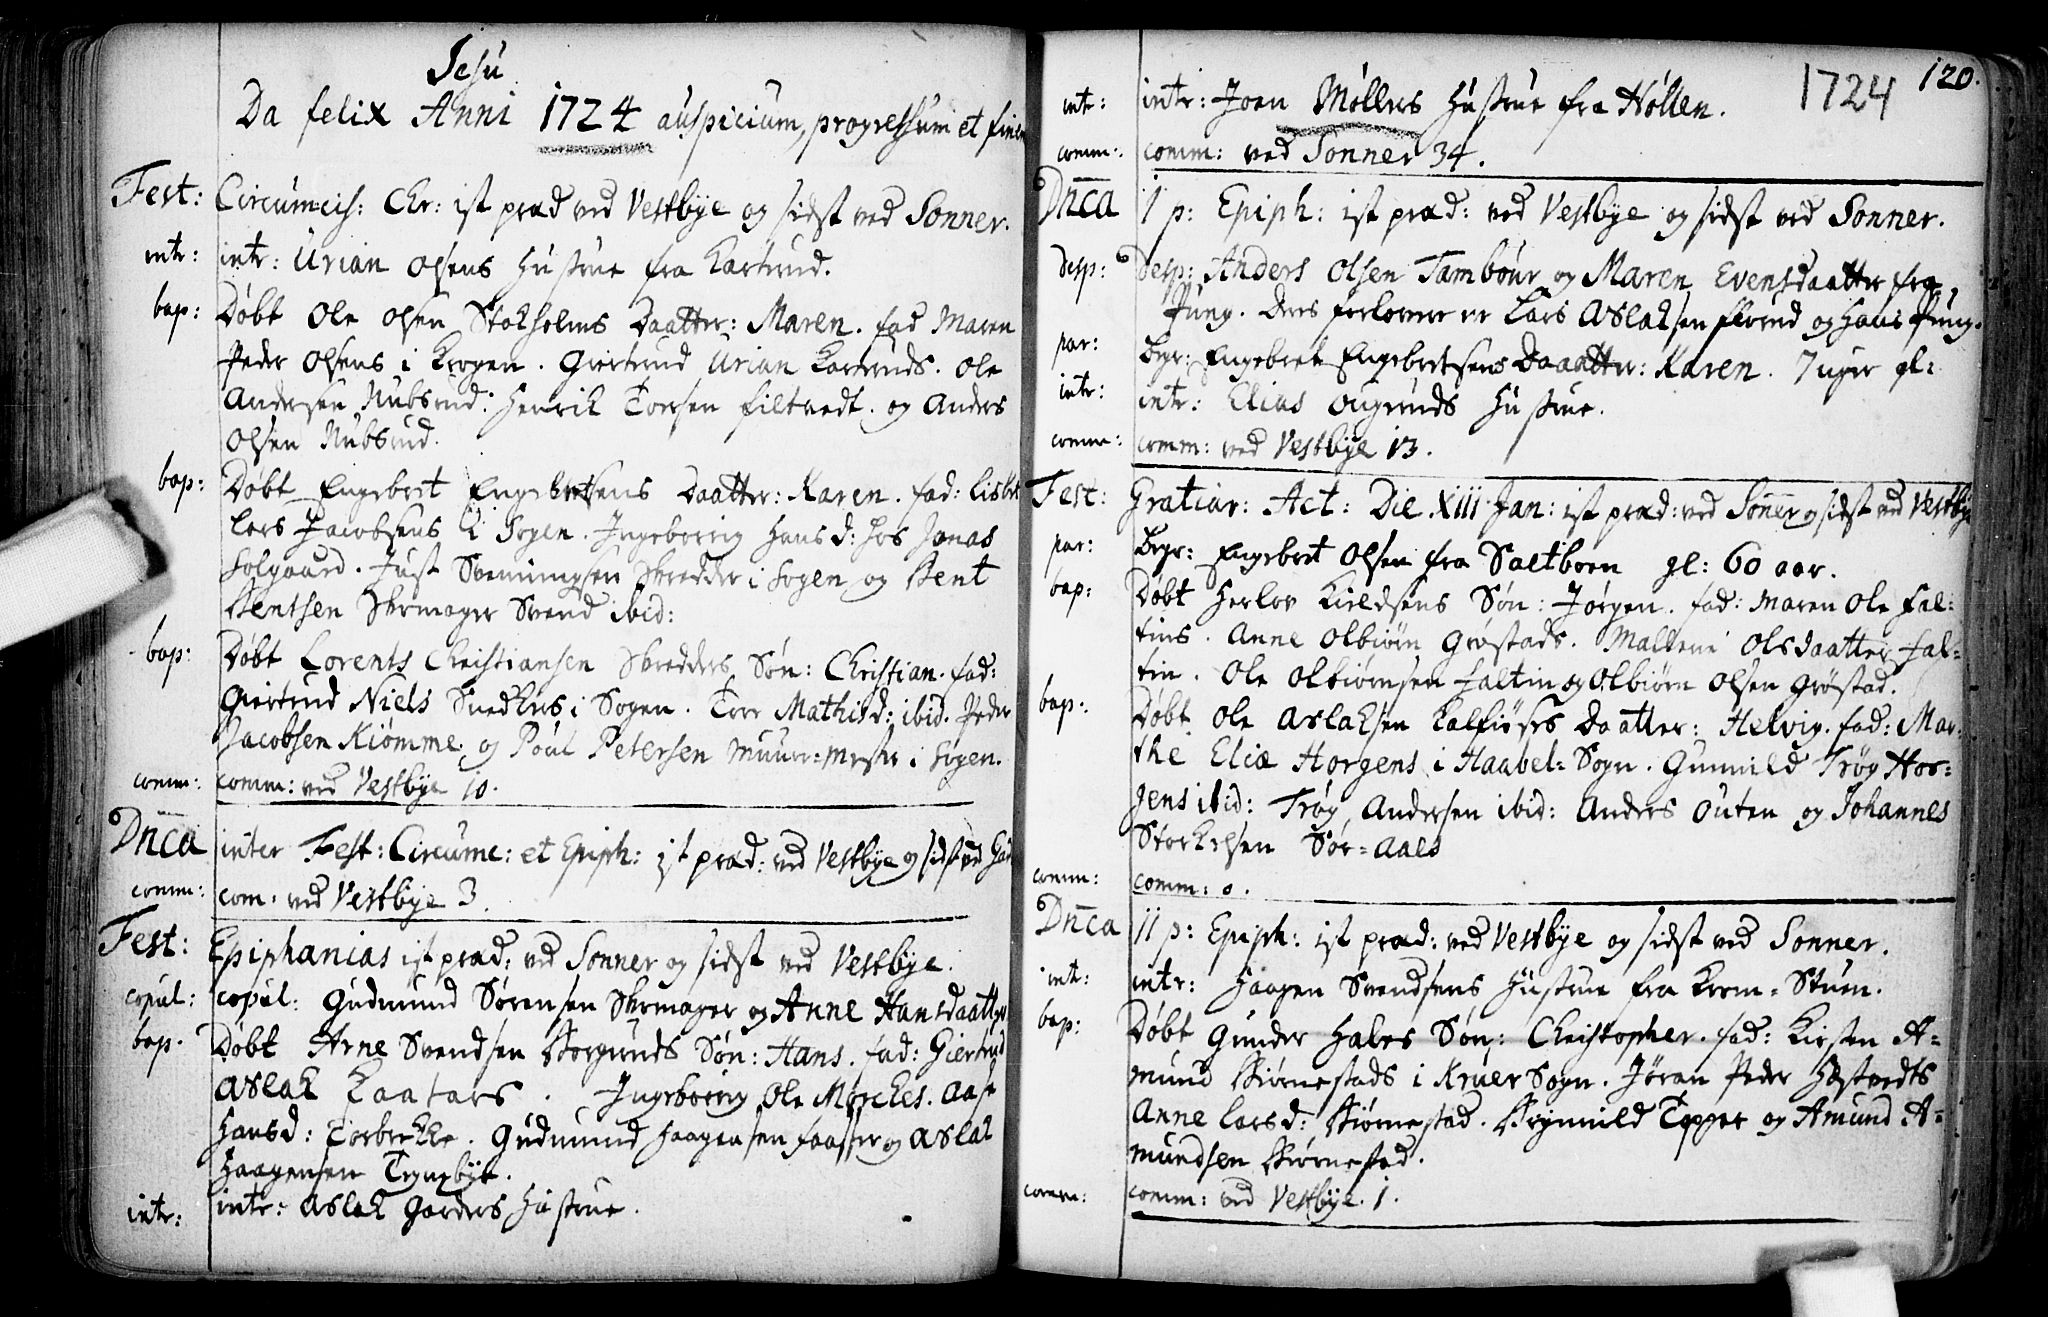 Jesu
Da felix Anni 1724 auspicium, progressum et finem
Fest: Circumcis: Chr: ist præd ved Vestbye og sidst ved Sonner.
intr: intr: Urian Olsens Hustrue fra Kartrud.
bap: Døbt Ole Olsen Stokholms Daatter: Maren. fad Maren
Peder Olsens i Krogen. Giertrud Urian Kartruds. Ole
Andersen Nubsrud. Henrik Torsen Filtvedt. og Anders
Olsen Nubsrud.
bap: Døbt Engebret Engebretsens Daatter: Karen. fad: Lisbet
Lars Jacobsens i Sogen. Ingeborrig Hansd: hos Jonas
Solgaard. Just Svenningsen Skredder i Sogen og Bent
Bentsen Skomager Svend ibid:
bap: Døbt Lorents Christiansen Skredders Søn: Christian. fad:
Giertrud Niels Snedkers i Sogen. Torr Mathisd: ibid. Peder
Jacobsen Kiømme og Poul Petersen Muur=Mester i Sogen.
comm: comm: ved Vestbye 10.
Dnca inter Fest: Circumc: et Epiph: ist præd: ved Vestbye og sidst ved
comm: com. ved Vestbye 3.
Fest: Epiphanias ist præd: ved Sonner og sidst ved Vestbye.
copul: copul: Gudmund Sørensen Skomager og Anne Hansdaatter
bap. Døbt Arne Svendsen Borgunds Søn: Hans. fad: Giertrud
Aslak Kaatars. Ingeborrig Ole Mørckes. Aase
Hansd: Torbrekke. Gudmund Haagensen Faasser og Aslak
Haagensen Trynxbye.
intr: intr: Aslak Garders Hustrue.
1724 120.
intr: intr: Joen Møllers Hustrue fra Høllen.
comm: comm: ved Sonner 34.
Dnca 1 p: Epiph: ist præd: ved Vestbye og sidst ved Sonner.
desp: desp: Anders Olsen Tambour og Maren Evensdaatter fra
Pung. Deres forlovere er Lars Aslaksen og Hans Pung.
par: Begr: Engebret Engebretsens Daatter: Karen. 7 uger gl:
intr: intr: Elias Hustrue.
comm: comm: ved Vestbye 13.
Fest: Gratiar: Act: Die XIII Jan: ist præd: ved Sonner og sidst ved Vestbye
par: Begr: Engebret Olsen fra Saltboen gl: 60 aar.
bap: Døbt Herlov Kieldsens Søn: Jørgen. fad: Maren Ole Fal=
tins. Anne Olbiørn Grøstads. Mallene Olsdaatter Fal=
tin. Ole Olbiørnsen Faltin og Olbiørn Olsen Grøstad.
bap: Døbt Ole Aslaksen Kalfiøses Daatter: Helvig. fad: Mar=
the Eliæ Horgens i Haabel=Sogn. Gunnild Trøg Hor=
gens ibid: Trøg Andersen ibid: Anders Outen og Johannes
Storkelsen Sør=Aals
comm: comm: 0.
Dnca 11 p: Epiph: ist præd: ved Vestbye og sidst ved Sonner.
intr: intr: Haagen Svendsens Hustrue fra Krom=Stuen.
bap: Døbt Gunder Hales Søn: Christopher. fad: Kirsten A=
mund Biørnestads i Kruer Sogn. Jøran Peder Høstvedts
Anne Larsd: Biørnestad. Brynnild Topper og Amund A=
mundsen Biørnestad.
comm: comm: ved Vestbye. 1.